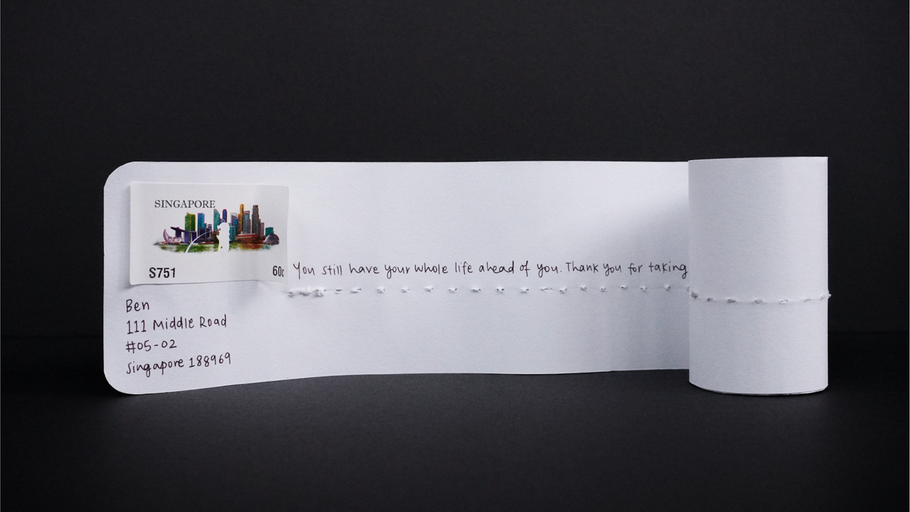 SINGAPORE
S751 60c
You still have your whole life ahead of you. Thank you for taking
Ben
111 Middle Road
#05-02
Singapore 188969